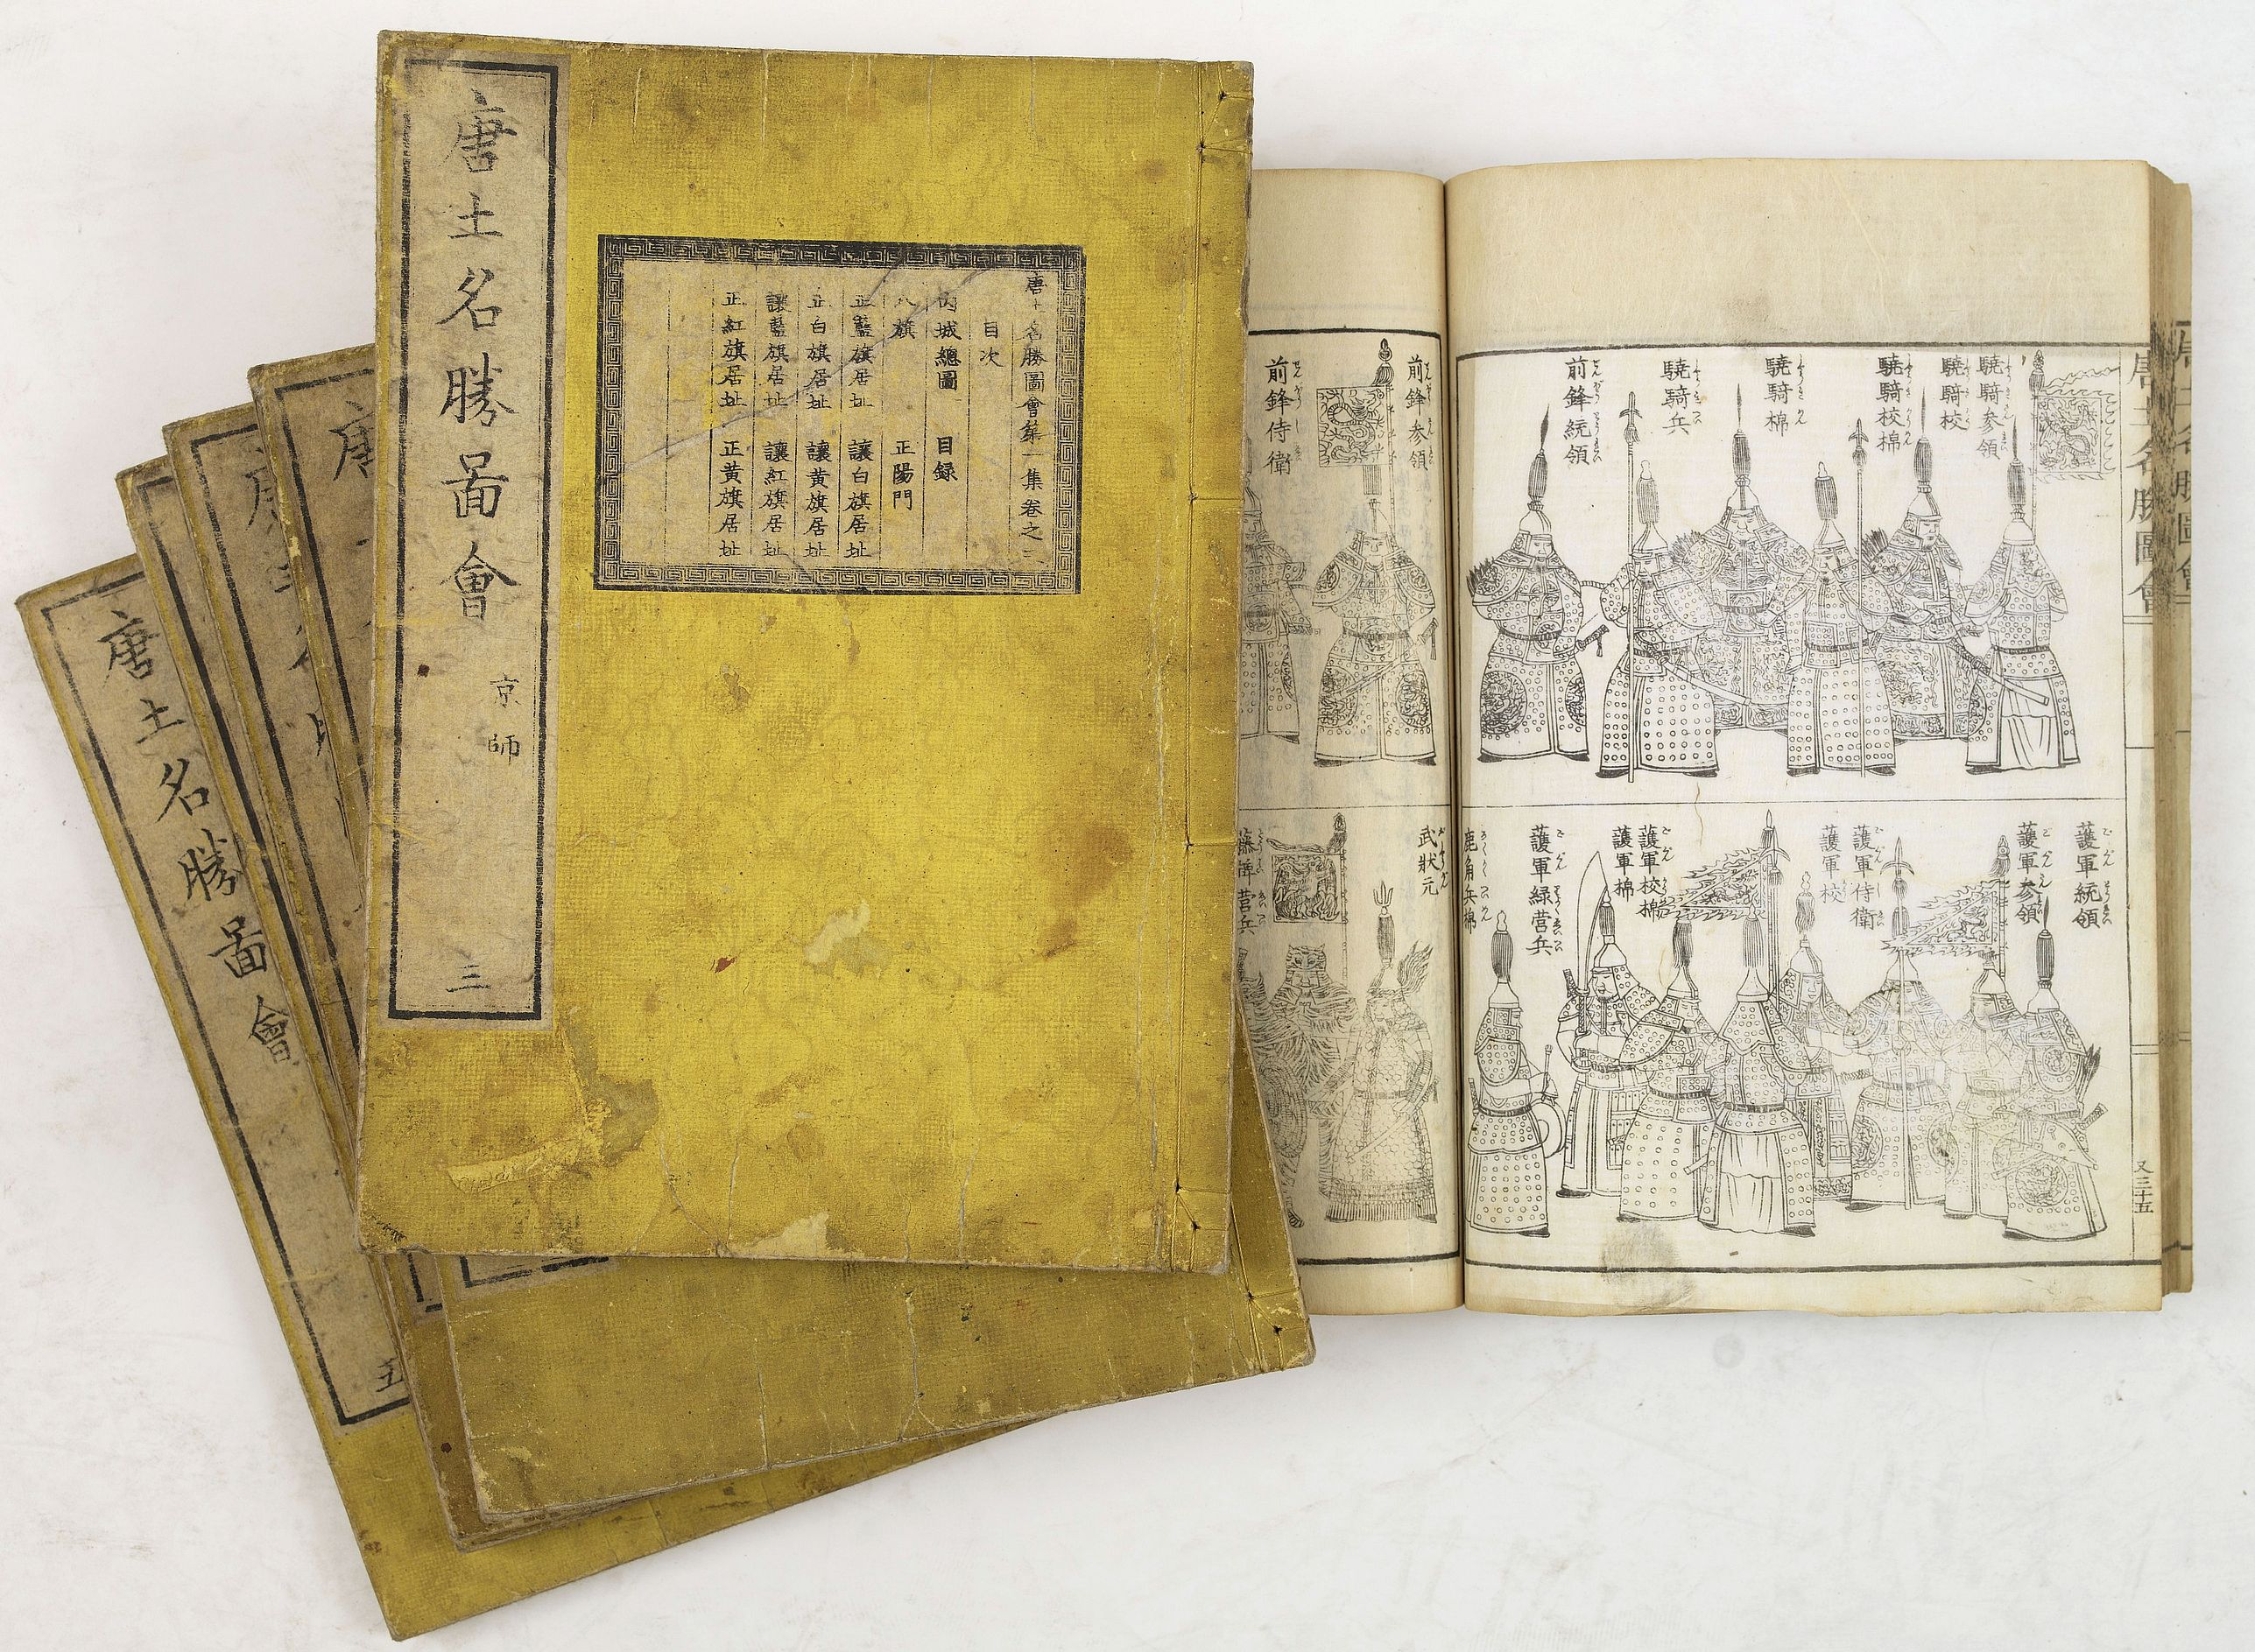 唐土名勝啚會
京師
三
名勝圖會第一集卷之三
目次
内城總圖 目録
八旗 正陽門
正藍旗居址 讓白旗居址
正白旗居址 讓黄旗居址
讓藍旗居址 讓紅旗居址
正紅旗居址 正黄旗居址
唐
唐
唐
唐土名勝啚會
五
驍騎参領
驍騎校
驍騎校棉
驍騎棉
驍騎兵
前鋒統領
護軍統領
護軍参領
護軍侍衛
護軍校
護軍校棉
護軍棉
護軍緑営兵
鹿角兵棉
唐土名勝圖會
又三十五
前鋒参領
前鋒侍衛
武狀元
藤牌営兵